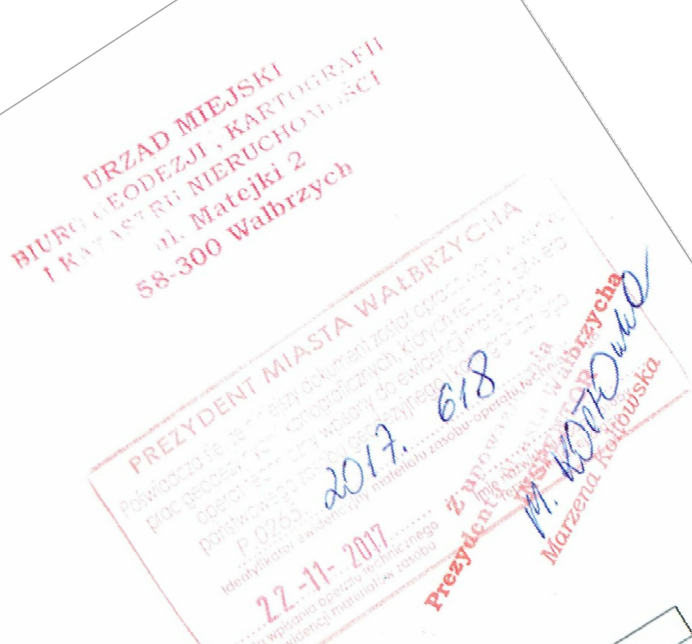 URZĄD MIEJSKI
BIURO GEODEZJI, KARTOGRAFII
I KATASTRU NIERUCHOMOŚCI
ul. Matejki 2
58-300 Wałbrzych
PREZYDENT MIASTA WAŁBRZYCHA
Poświadcza się, że niniejszy dokument został opracowany w wyniku
prac geodezyjnych i kartograficznych, których rezultaty zawiera
operat wpisany do ewidencji materiałów
państwowego zasobu geodezyjnego i kartograficznego
2017. 618
Identyfikator ewidencyjny materiału zasobu-operatu techn
22-11-2017
wpisania operatu technicznego
ewidencji materiałów zasobu
Z upoważnienia
Prezydenta Miasta Wałbrzycha
INSPEKTOR
Marzena Kotłowska